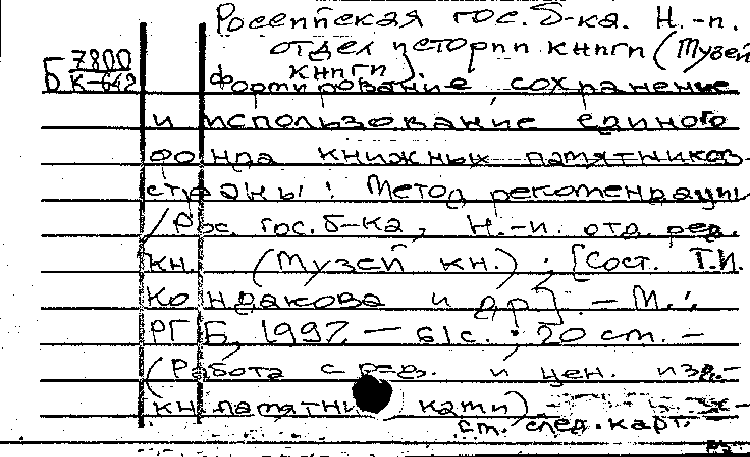 Российская гос. б-ка. Н.-и.
отдел истории книги (Музей
книги).
Б 7800
К-642
Формирование, сохранение
и использование единого
фонда книжных памятников
страны: Метод. рекомендации
/Рос. гос. б-ка, Н.-и. отд. ред.
кн. (Музей кн.); [Сост. Т.И.
Кондакова и др.]. - М.:
РГБ, 1997. - 61 с.; 20 см. -
(Работа с ред. и цен. изд.-
кн. памятниками)
см. след. карт.